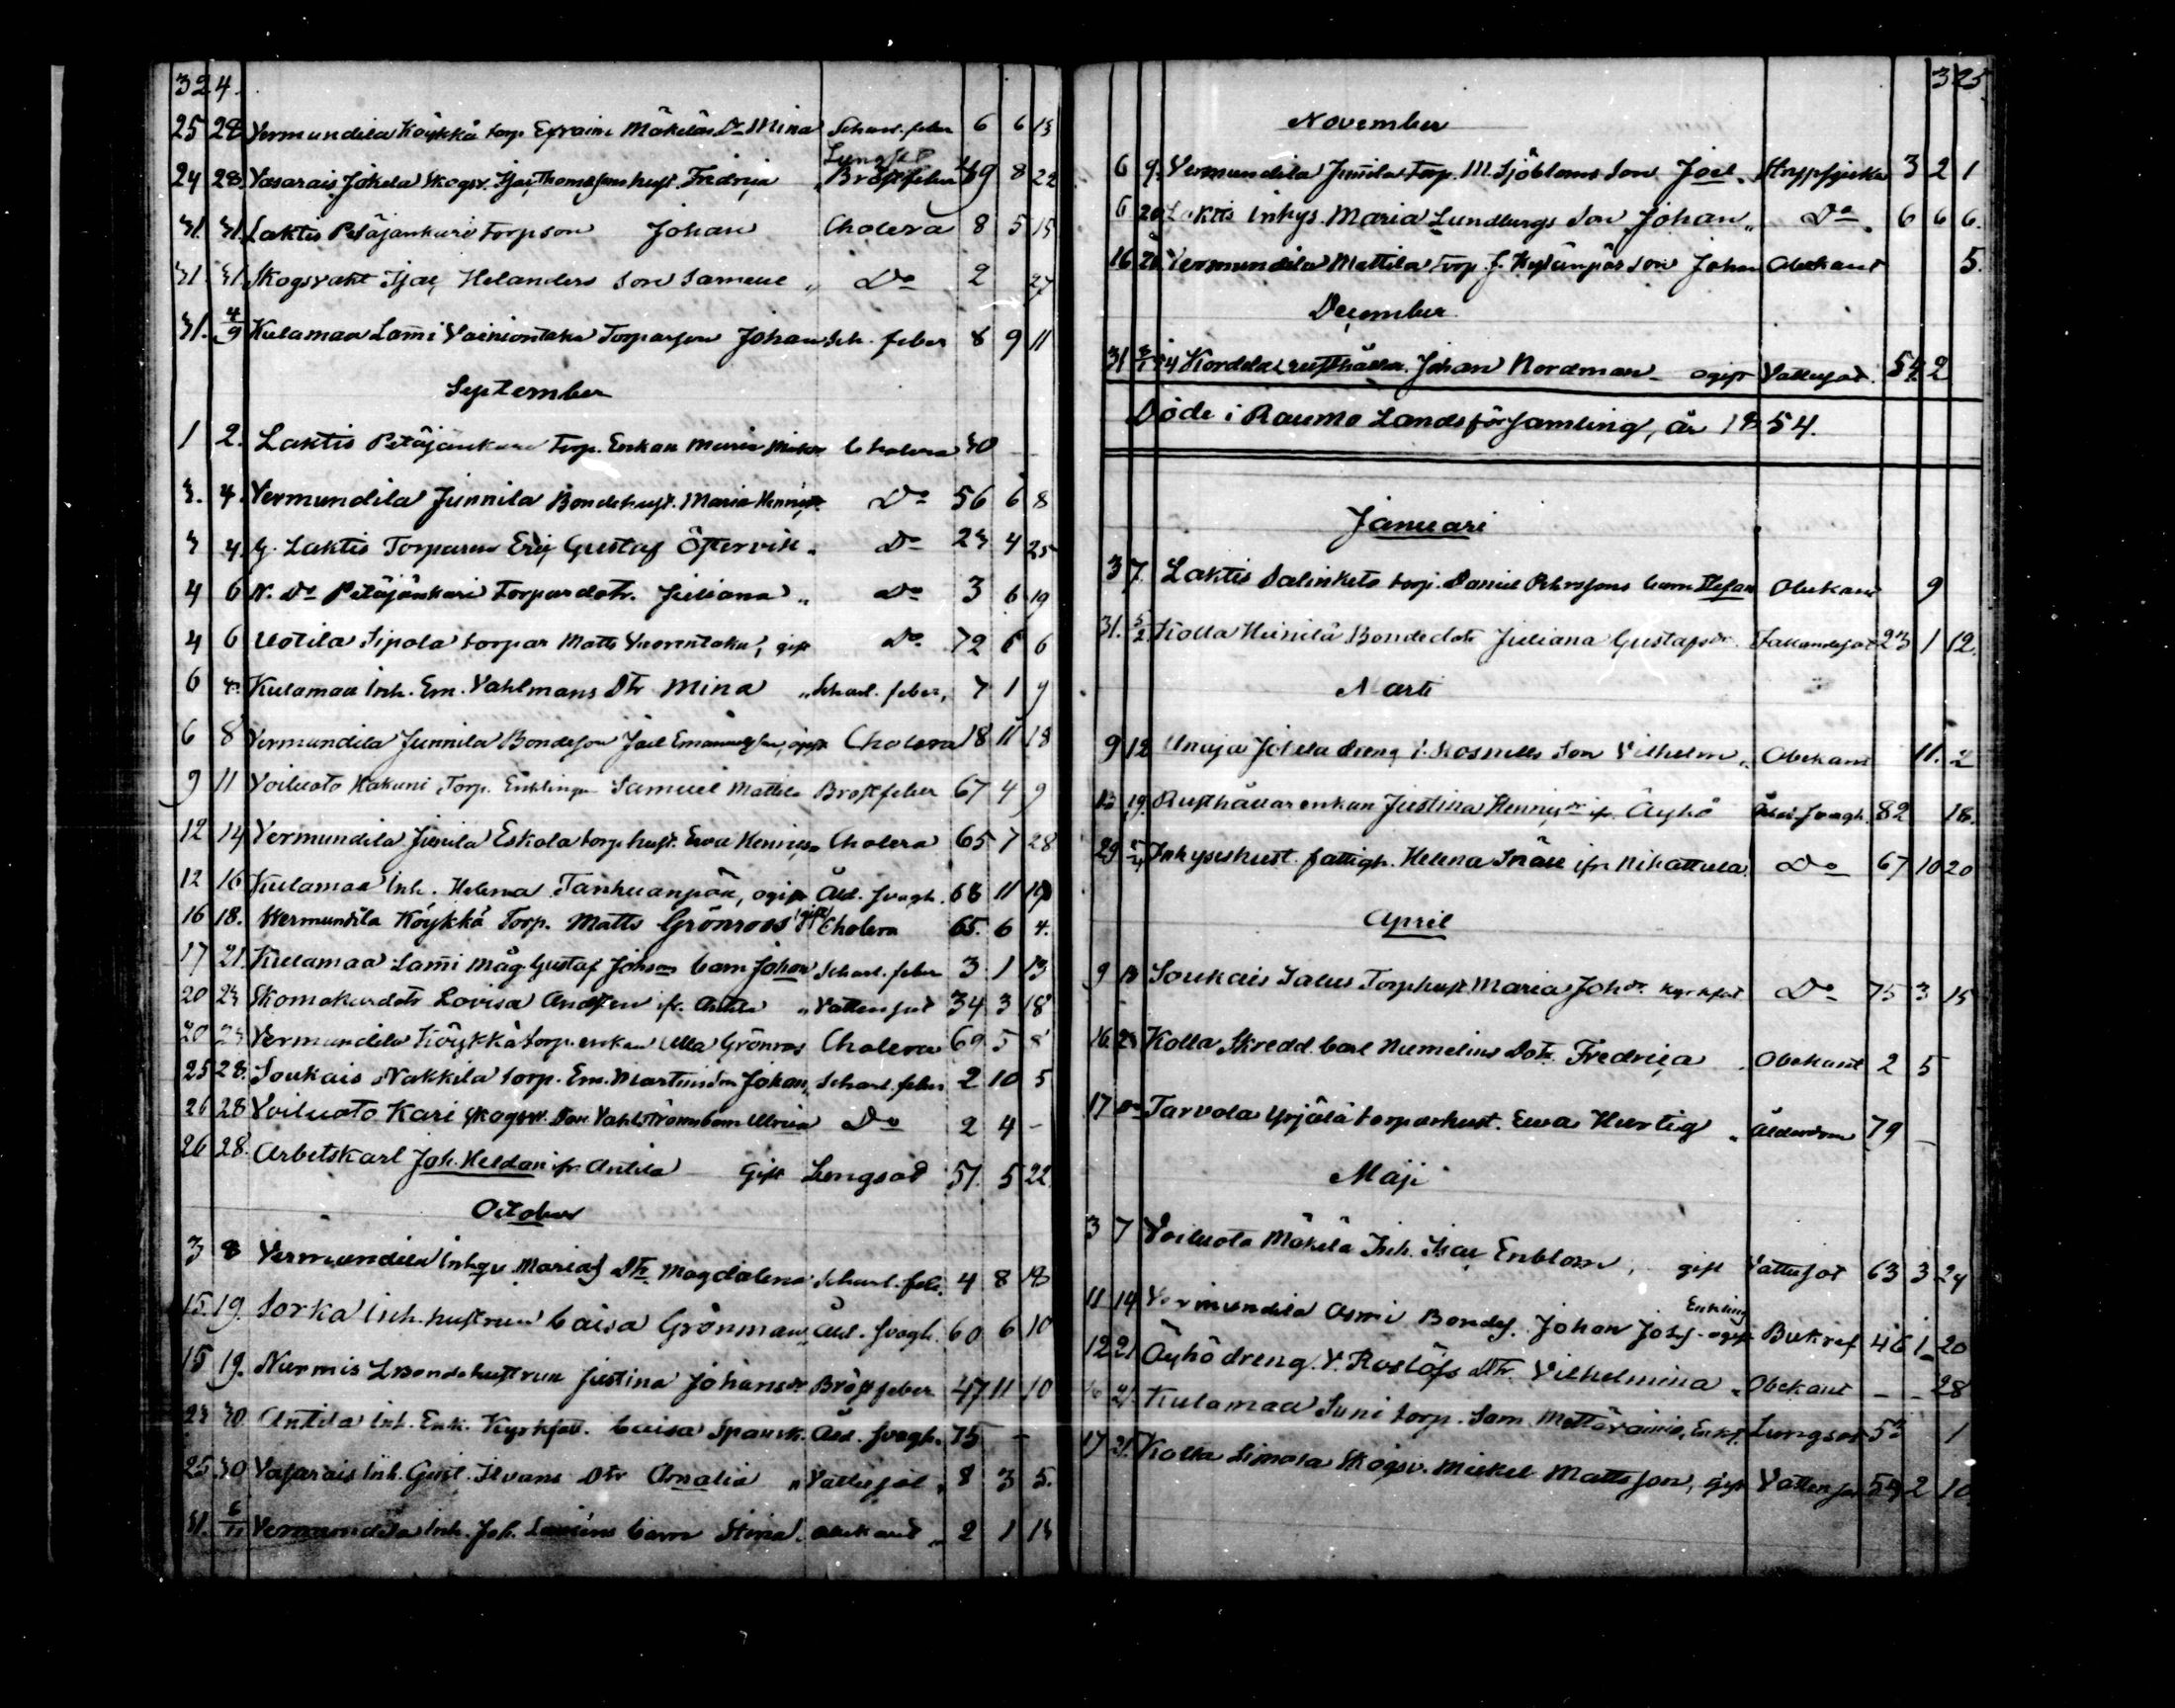 324.
25 28 Vermundila Köykkä torp Efraim Mäkeläs Dr Mina Scharl. feber 6 6 13
Lungsot
24 28. Vasarais Jokela Skogsv. Isac Thomassons hust. Fredrica Bröstfeber 49 8 22
31. 31. Laktis Petäjänkari torpson Johan Cholera 8 5 15
31. 31. Skogsvakt Isac Helanders Son Samuel „ Do 2 27
31. 4/9 Kulamaa Lam̄i Vainiontaka Torparson Johan Sch. feber 8 9 11
September
1 2. Laktis Petäjänkari Torp. Enkan Maria Cholera 40
3. 4. Vermundila Junnila Bondehust. Maria Henricsdr Do 56 6 8
3 4. G. Laktis Torparen Eric Gustaf Öfvervik „ Do 23 4 25
4 6 N. Do Petäjänkari Torpardotr. Juliana „ Do 3 6 19
4 6 Uotila Sipola torpar Matts Vuorentaka, gift Do 72 6 6
6 8 Kulamaa Inh. Em. Vahlmans Dtr Mina „ Scharl. feber, 7 1 9
6 8 Vermundila Junnila Bondeson Joel Emanuelson, ogift Cholera 18 11 18
9 11 Voiluoto Hakuni Torp. Enklingen Samuel Mattila Bröstfeber 67 4 9
12 14 Vermundila Jun̄ila Eskola torp hust. Ewa Henricsdr Cholera 65 7 28
12 16 Kulamaa Inh. Helena Tanhuanpää, ogift Åld. svagh. 68 11 19
16 18. Wermundila Köykkä Torp. Matts Grönroos (gift) Cholera 65. 6 4.
17 21. Kulamaa Lam̄i Måg. Gustaf Johsons barn Johan Scharl. feber 3 1 13
20 23 Skomakardotr Lovisa Andsten ifr. Antila „ Vattensot 34 3 18
20 23 Vermundila Köykkä torp. enkan Ulla Grönros Cholera 69 5 8
25 28. Soukais Nakkila torp. Em. Martins Son Johan, Scharl. feber 2 10 5
26 28 Voiluoto Kari Skogsv. Dav. Vahlströms barn Ulrica Do 2 4 -
26 28. Arbetskarl Joh. Heldan ifr. Antila Gift Lungsot 51. 5 22
October
3 8 Vermundila Inhys. Marias Dtr Magdalena Scharl. feb. 4 8 13
15. 19. Sorka Inh. hustrun Caisa Grönman Åld. svagh. 60 6 10
15 19. Nurmis L Bondehustrun Justina Johansdr Bröstfeber 47 11 10
23 30 Antila Inh. Enk. Kyrkfatt. Caisa Spansk. Åld. svagh. 75 -
25 30 Vasarais Inh. Gust. Ilvans Dtr Amalia „ Vattusot „ 8 3 5.
31. 6/11 Vermundila Inh. Joh. barn Stina obekant „ 2 1 13
325.
November
6 9. Vermundila Jun̄ila torp. M. Sjöbloms Son Joel „ Strypsjuka 3 2 1
6 20 Laktis Inhys. Maria Lundbergs Son Johan „ Do „ 6 6 6.
16 20. Vermundila Mattila torp. J. Kylänpää Son Johan Obekant 5.
December
31 8/1 54 Kordela rusthålln. Johan Nordman ogift Vattusot. 54 2
Döde i Raumo Landsförsamling, år 1854.
Januari
3 7. Laktis Salinketo torp. Daniel Pehrssons barn Stefan Obekant 9
31. 5/2. Kolla Heinilä Bondedotr Juliana Gustafsdr. Fallandesot 23 1 12.
Marti
9 12 Unaja Jokela dreng V. Rosnells Son Vilhelm „ Obekant 11. 2
13 19. Rusthållarenkan Justina Henricsdr ifr. Äyhö Ålder. svagh. 82 18.
29 2/4 Inhyseshust. fattigh. Helena Snäll ifrn Nihattula Do 67 10 20
April
9 13 Soukais Salus Torphust. Maria Johdr. Kyrkfat Do 75 3 15
16 23 Kolla Skredd. Carl Numelins Dotr Fredrica „ Obekant 2 5
17 Do Tarvola Yrjälä torparhust. Ewa Hurtig „ Ålderdom 79 -
Maji
3 7 Voiluoto Mäkelä Inh. Isac Enblom, gift Vattusot 63 3 24
Enkling
11 14 Vermundila Osmi Bondes. Johan Josefs. ogift Bukref 46 1 20
12 21 Äyhö dreng. V. Roslöfs Dtr. Vilhelmina „ Obekant - - 28
16 21. Kulamaa Suni torp. Sam. Enkl. Lungsot 53 1
17 21. Kolla Simola Skogsv. Mickel Mattsson, Gift Vattensot 59 2 10.